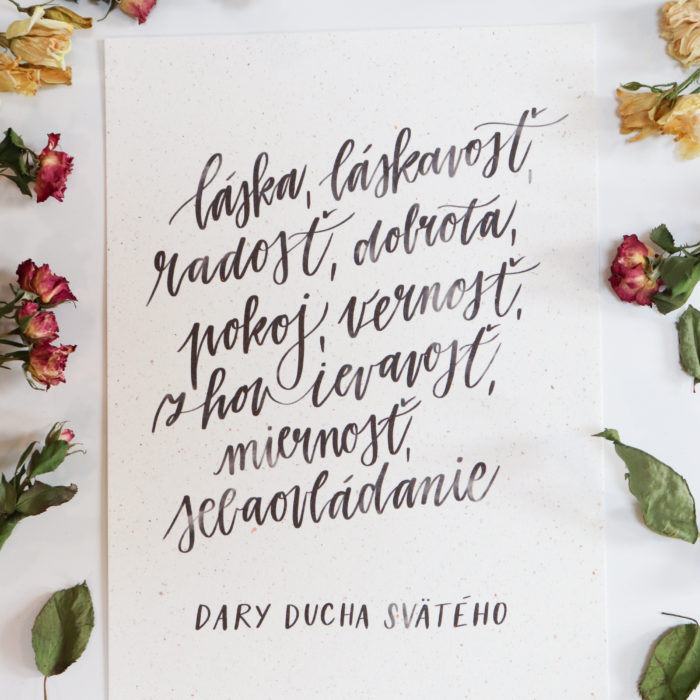 láska, láskavosť,
radosť, dobrota,
pokoj, vernosť,
zhovievavosť,
miernosť,
sebaovládanie
DARY DUCHA SVÄTÉHO